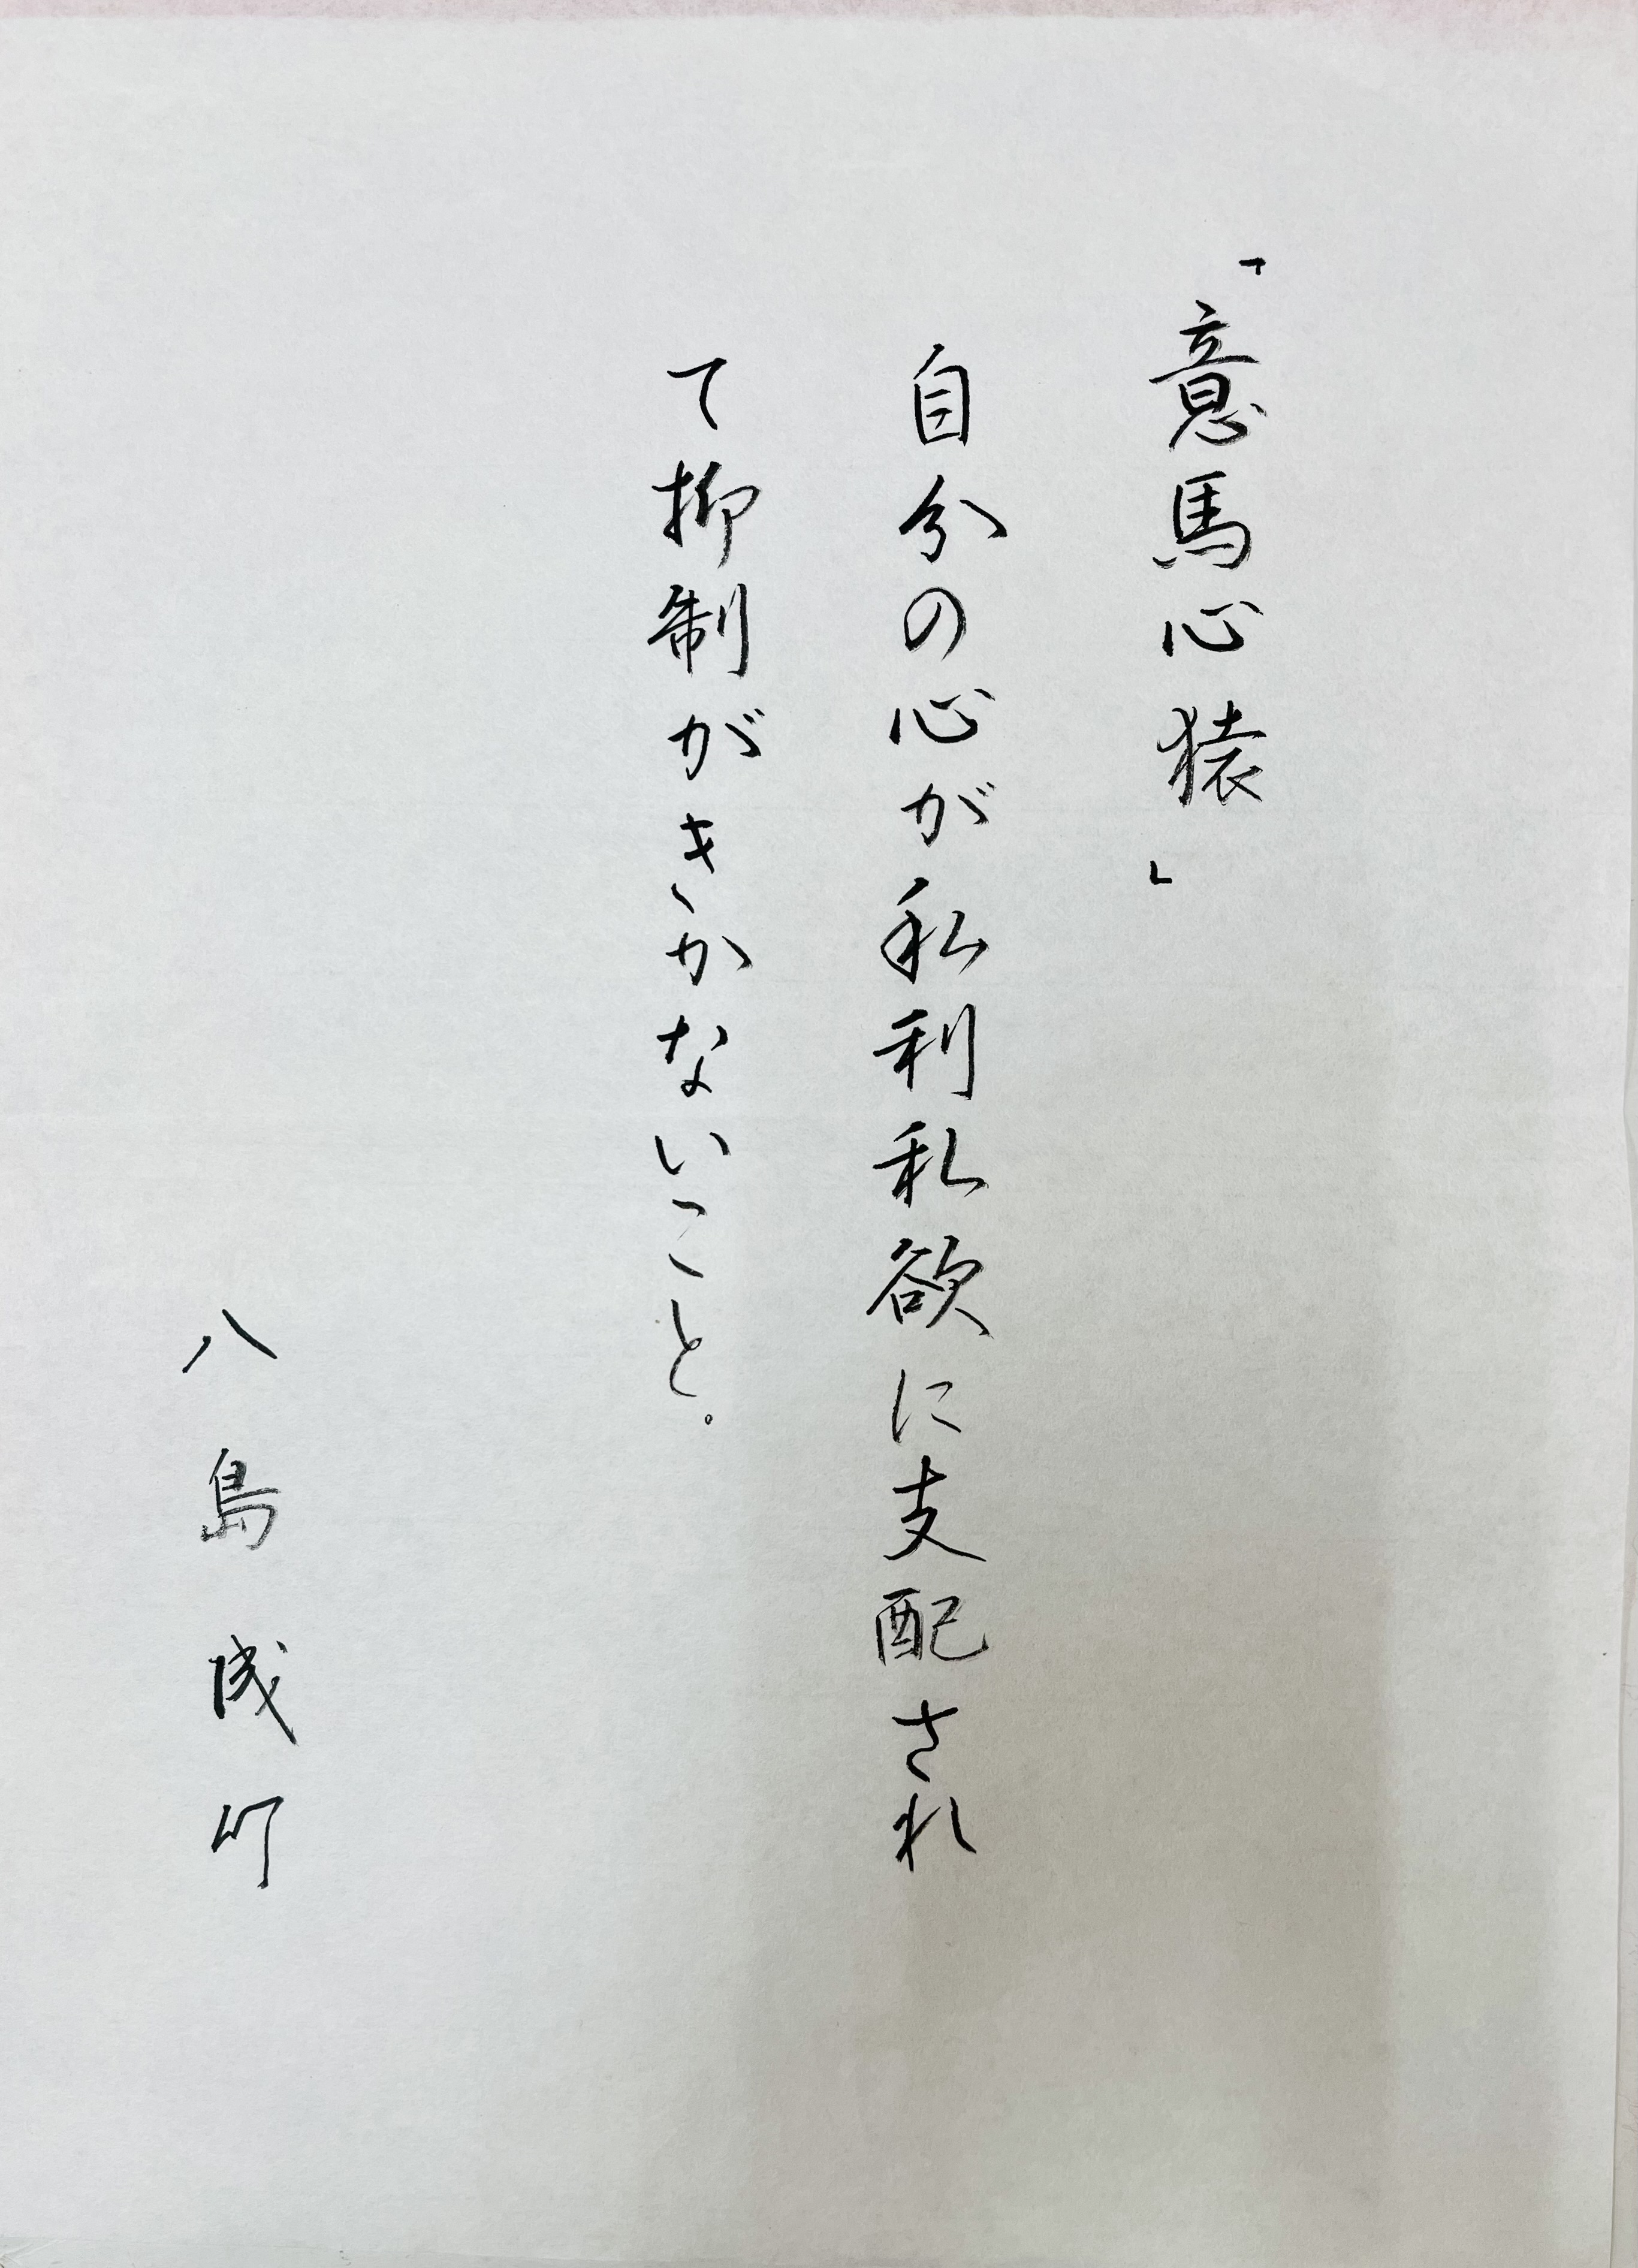 「意馬心猿」
自分の心が私利私欲に支配され
て抑制がきかないこと。
八島成竹